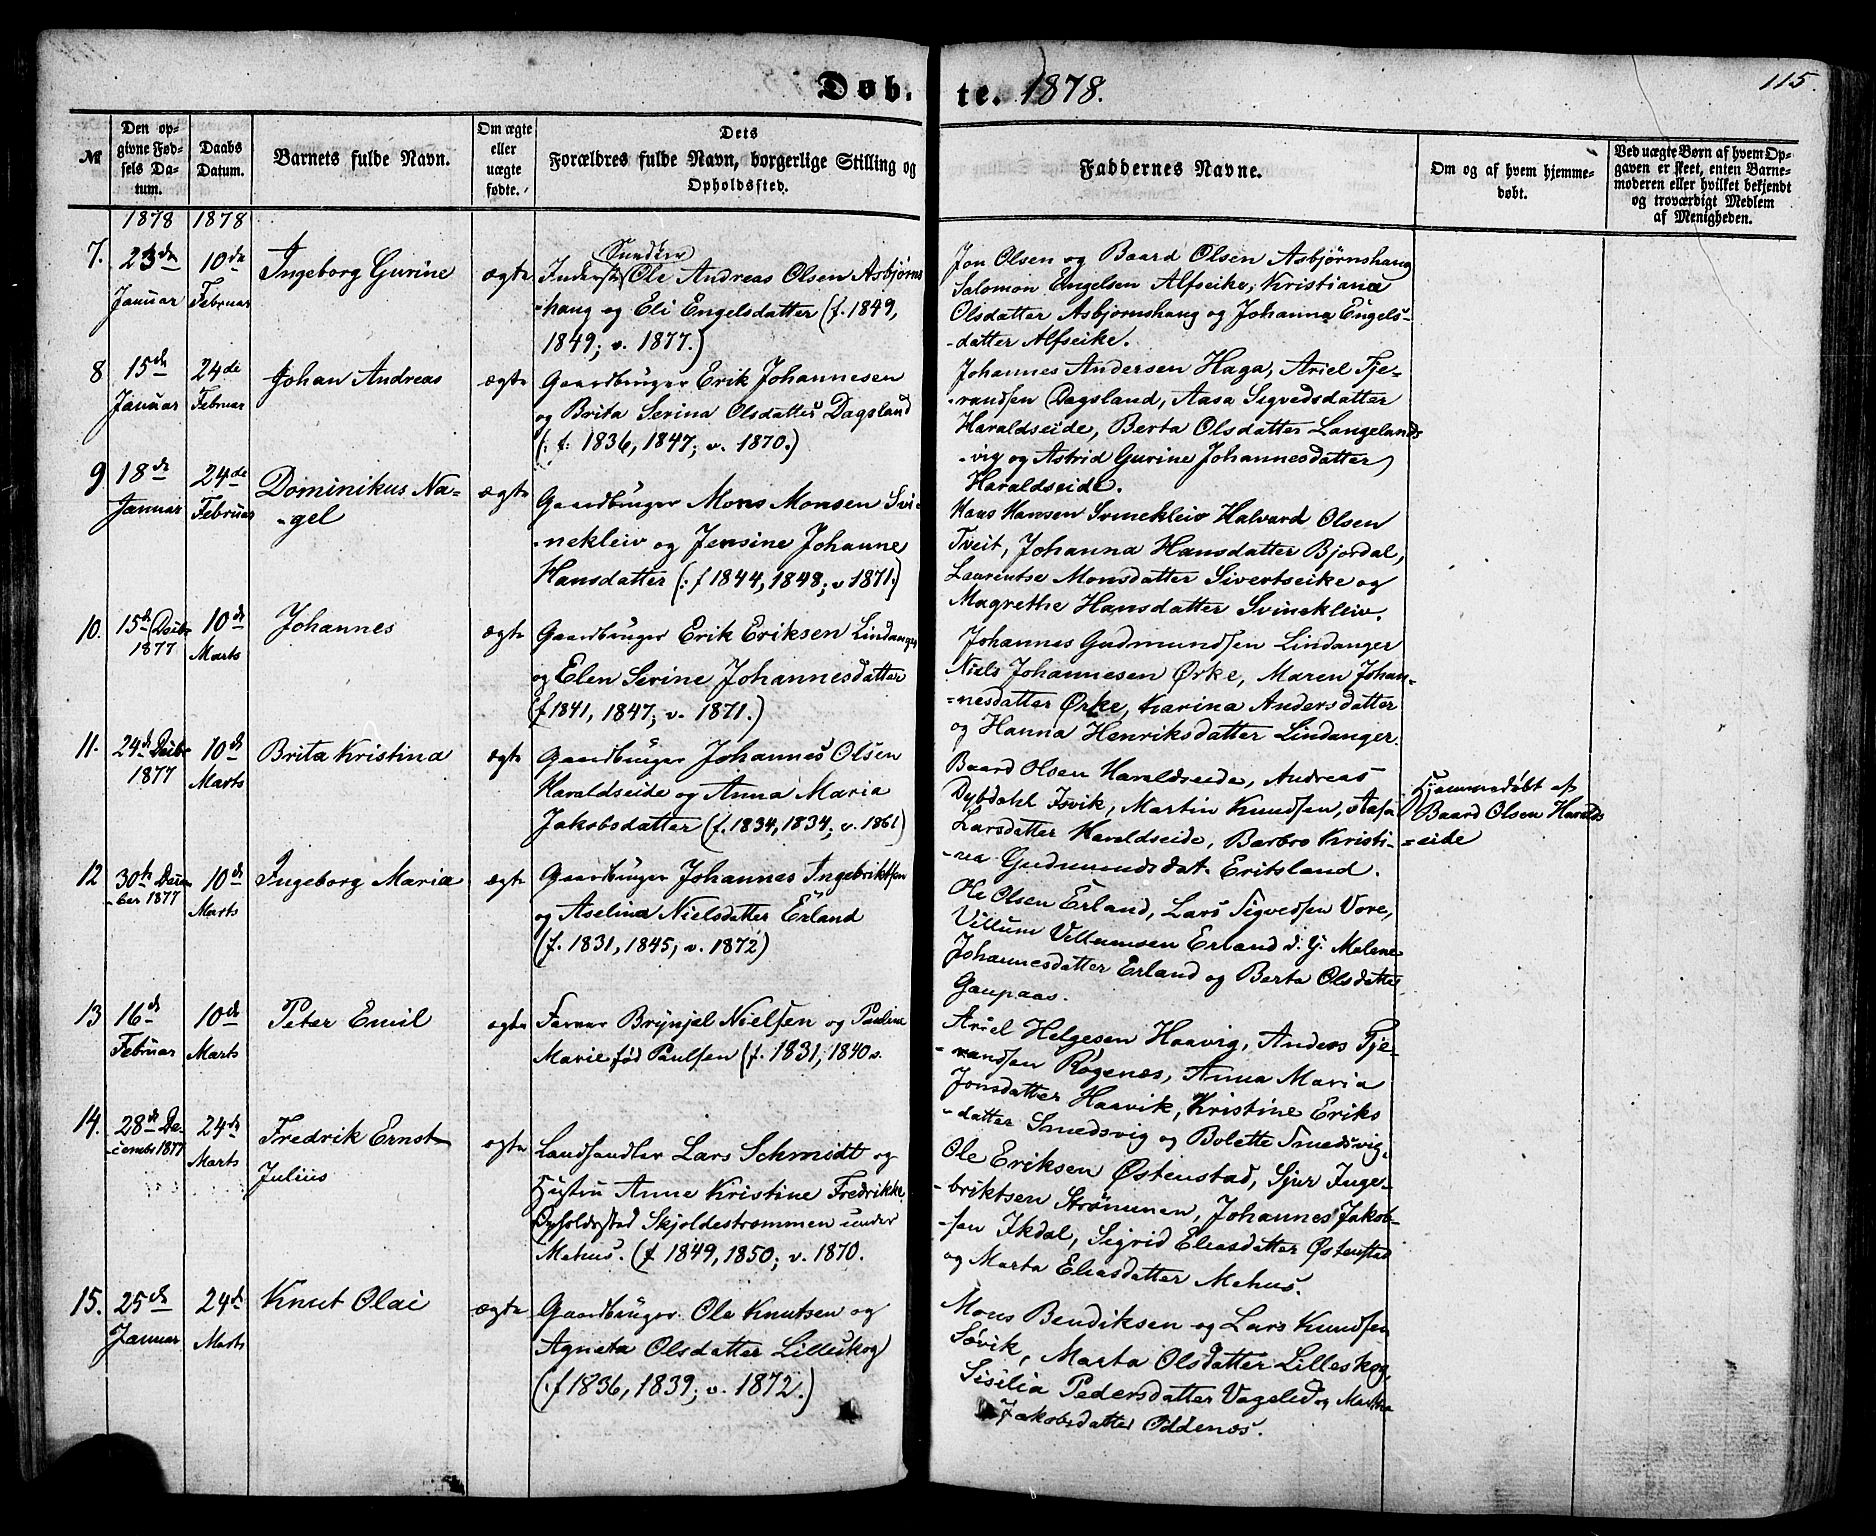 Døb.
te. 1878.
115.
№
Den op-
givne Fød-
sels Da-
tum.
Daabs
Datum.
Barnets fulde Navn.
Om ægte
eller
uægte
fødte.
Dets
Forældres fulde Navn, borgerlige Stilling og
Opholdssted.
Faddernes Navne.
Om og af hvem hjemme-
døbt.
Ved uægte Børn af hvem Op-
gaven er skeet, enten Barne-
moderen eller hvilket bekjendt
og troværdigt Medlem
af Menigheden.
1878
1878
7.
23de
Januar
10de
Februar
Ingeborg Gurine
ægte
Inderst Ole Andreas Olsen Asbjørns
-haug og Eli Engelsdatter (f. 1849,
1849; v. 1877.)
Jon Olsen og Baard Olsen Asbjørnshaug
Salomon Engelsen Alfseike, Kristiana
Olsdatter Asbjørnshaug og Johanna Engels-
-datter Alfseike.
8
15de
Januar
24de
Februar
Johan Andreas
ægte
Gaardbruger Erik Johannesen
og Brita Serina Olsdatter Dagsland
(: f: 1836, 1847; v. 1870.)
Johannes Andersen Haga, Ariel Tje-
-randsen Dagsland, Aasa Sigvedsdatter
Haraldseide, Berta Olsdatter Langelands
-vig og Astrid Gurine Johannesdatter
Haraldseide.
9
18de
Januar
24de
Februar
Dominikus Na-
-gel
ægte
Gaardbruger Mons Monsen Svi-
-nekleiv og Jensine Johanne
Hansdatter (: f 1844, 1848; v 1871.)
Hans Hansen Svinekleiv Halvard Olsen
Tveit, Johanna Hansdatter Bjordal,
Laurentse Monsdatter Sivertseike og
Magrethe Hansdatter Svinekleiv.
10.
15de Decbr
1877
10de
Marts
Johannes
ægte
Gaardbruger Erik Eriksen Lindanger
og Elen Serine Johannesdatter
(f 1841, 1847; v. 1871.)
Johannes Gudmundsen Lindanger
Niels Johannesen Ørke, Maren Johan-
-nesdatter Ørke, Karina Andersdatter
og Hanna Henriksdatter Lindanger.
11.
24de Decbr
1877
10de
Marts
Brita Kristina
ægte
Gaardbruger Johannes Olsen
Haraldseide og Anna Maria
Jakobsdatter (f. 1834, 1834; v. 1861)
Baard Olsen Haraldseide, Andreas
Dybdahl Isvik, Martin Knudsen, Aasa
Larsdatter Haraldseide, Barbro Kristi-
-na Gudmundsdat. Eritsland.
Hjemmedøbt af
Baard Olsen Haralds
-eide
12
30te Decem
-ber 1877
10de
Marts
Ingeborg Maria
ægte
Gaardbruger Johannes Ingebriktsen
og Aselina Nielsdatter Erland
(f. 1831, 1845; v. 1872)
Ole Olsen Erland, Lars Sigvedsen Vore,
Villum Villumsen Erland d. y. Malene
Johannesdatter Erland og Berta Olsdatter
Gaupaas.
13
16de
Februar
10de
Marts
Peter Emil
ægte
Farver Brynjel Nielsen og Pauline
Marie fød Paulsen (f. 1831, 1840 v.
Ariel Helgesen Haavig, Anders Tje-
-randsen Røgenes, Anna Maria
Jonsdatter Haavik, Kristine Eriks
-datter Smedsvig og Bolette Smedsvig.
14.
28de De-
-cember 1877
24de
Marts
Fredrik Ernst
Julius
ægte
Landhandler Lars Schmidt og
Hustru Anne Kristine Fredrikke
Opholdssted Skjoldestrømmen under
Mehus. (f 1849, 1850; v. 1870.
Ole Eriksen Østenstad, Sjur Inge-
-briktsen Strømmen, Johannes Jakob-
-sen Ikdal, Sigrid Eliasdatter Østenstad
og Marta Eliasdatter Mehus.
15.
25de
Januar
24de
Marts
Knut Olai
ægte
Gaardbruger Ole Knutsen og
Agneta Olsdatter Lilleskog
(: f 1836, 1839; v. 1872.)
Mons Bendiksen og Lars Knudsen
Søvik, Marta Olsdatter Lilleskog,
Sisilia Pedersdatter Vageled og Martha
Jakobsdatter Oddenes.